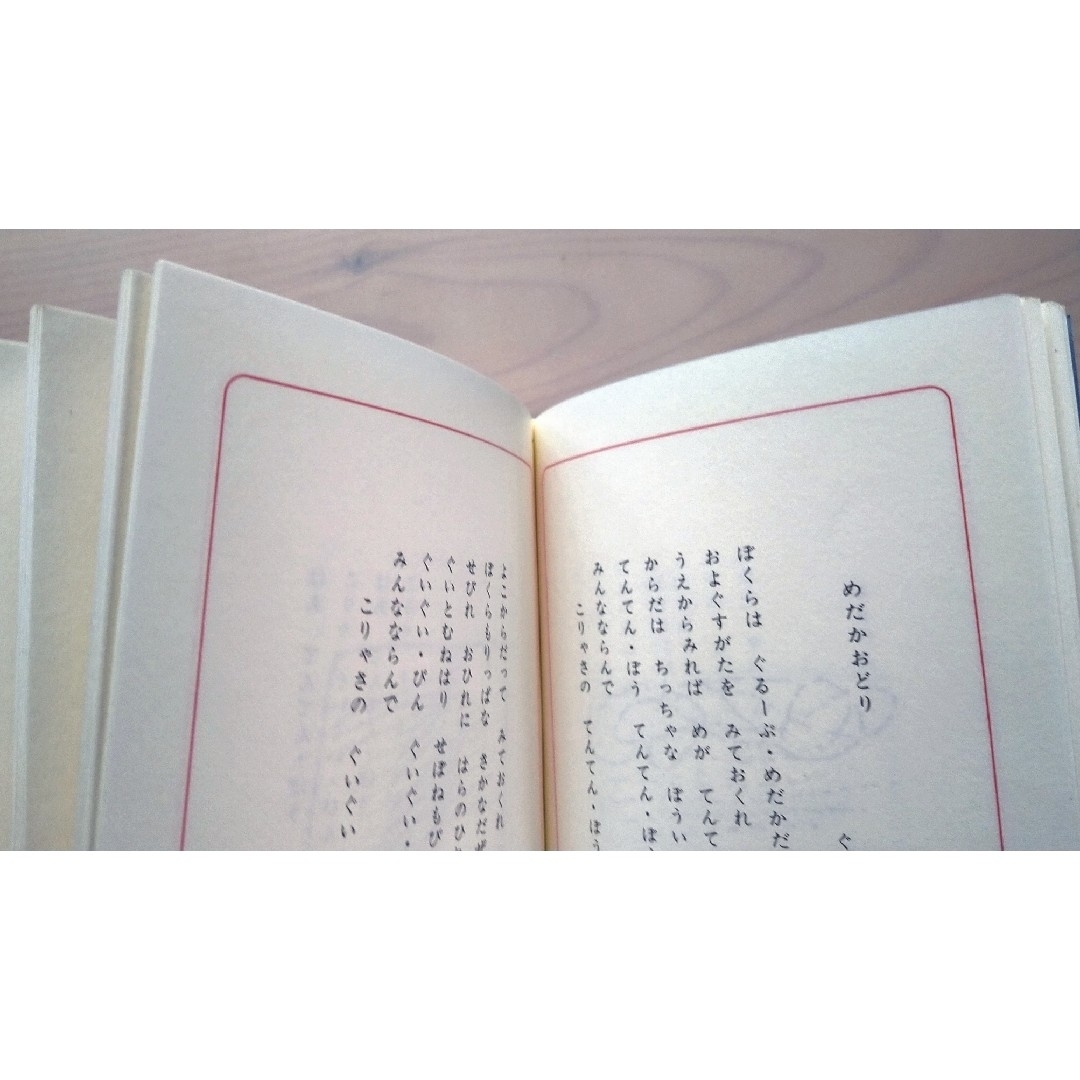 めだかおどり
ぐ
ぼくらは　ぐるーぷ・めだかだ
およぐすがたを　みておくれ
うえからみれば　めが　てんて
からだは　ちっちゃな　ぼうい
てんてん・ぼう　てんてん・ぼ
みんなならんで
こりゃさの　てんてん・ぼう
よこからだって　みておくれ
ぼくらもりっぱな　さかなだぜ
せびれ　おひれに　はらのひ
ぐいとむねはり　せぼねもぴ
ぐいぐい・ぴん　ぐいぐい・
みんなならんで
こりゃさの　ぐいぐい